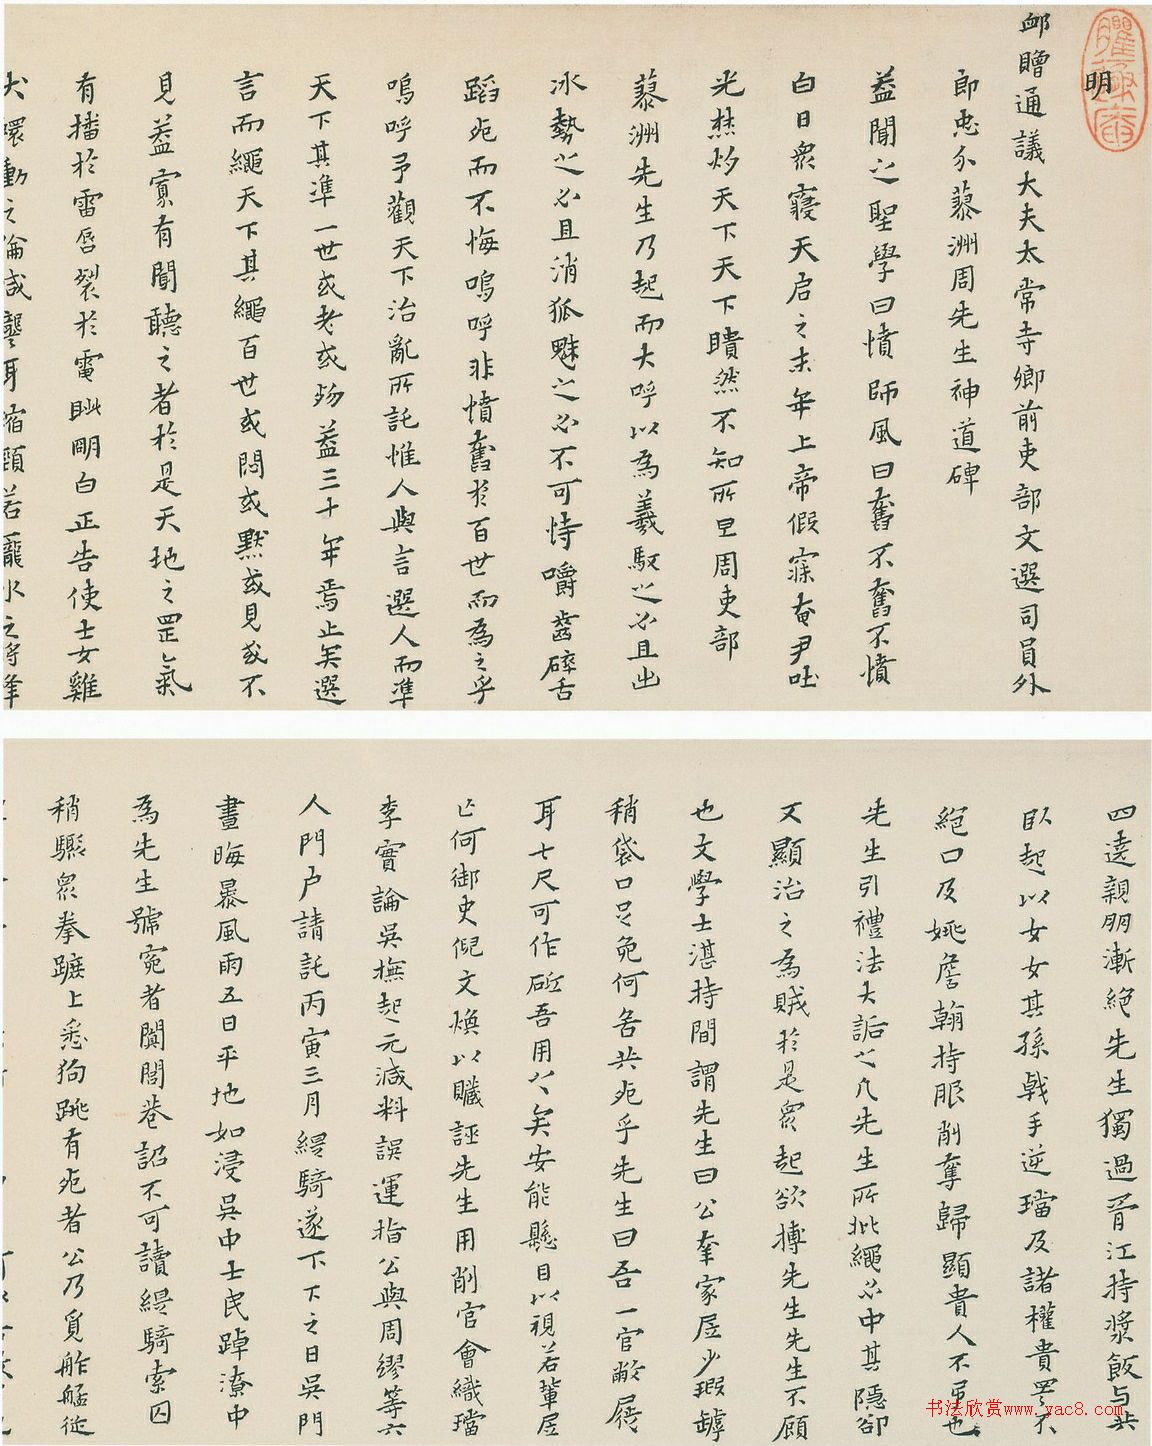 明
卹贈通議大夫太常寺卿前吏部文選司員外
郎忠介蓼洲周先生神道碑
蓋聞之聖學曰憤師風曰奮不奮不憤
白日眾寢天启之末年上帝假寐奄尹吐
光焚灼天下天下瞶然不知所旦周吏部
蓼洲先生乃起而大呼以為羲馭之必且出
冰勢之必且消狐魅之必不可恃嚼齒碎舌
蹈死而不悔嗚呼非憤奮於百世而為之乎
嗚呼予觀天下治亂所託惟人與言選人而準
天下其準一世或老或殤蓋三十年焉止矣選
言而繩天下其繩百世或悶或默或見或不
見蓋寡有聞聽之者於是天地之罡氣
有播於雷唇裂於電眦明白正告使士女雞
犬環動之
四遠親朋漸絕先生獨過胥江持漿飯与共
臥起以女女其孫戟手逆璫及諸權貴罵不
絕口及姚詹翰持服削奪歸顯貴人不弔也
先生引禮法大詬之凡先生所批繩必中其隱卻
又顯治之為賊於是眾起欲搏先生先生不顧
也文學士湛持間謂先生曰公奎家居少瑕罅
稍袋口足免何各共死乎先生曰吾一官敝屣
耳七尺可作砥吾用以矣安能懸目以視若輩居
亡何御史倪文煥以贓誣先生用削官會織璫
李實論吳撫起元減料誤運指公與周繆等六
人門戶請託丙寅三月緹騎遂下下之日吳門
晝晦暴風雨五日平地如浸吳中士民踔潦中
為先生號冤者闐閭巷詔不可讀緹騎索囚
稍驟眾拳蹠上悉狗跳有死者公乃覓舴艋從
书法欣赏www.yac8.com